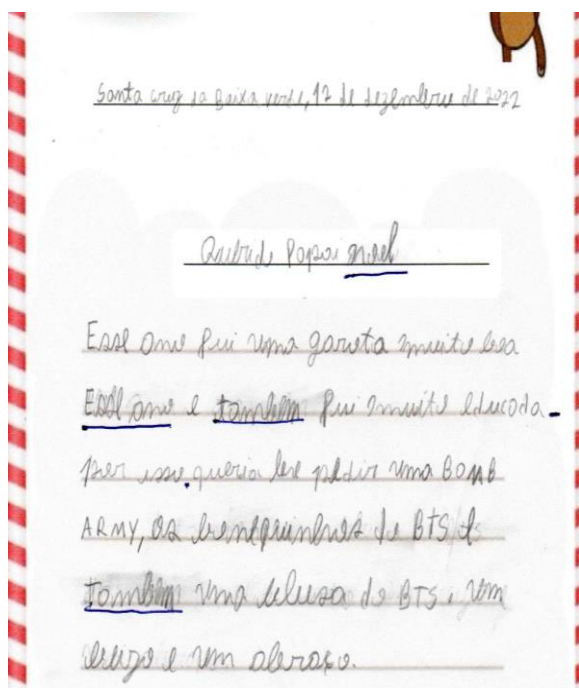 Santa cruz da Baixa verde, 12 de dezembro de 2022
Querido Papai noel
Esse ano fui uma garota muito boa
Esse ano e também fui muito educada
por isso queria lhe pedir uma BOMB
ARMY, os bonequinhos do BTS e
também uma blusa do BTS, um
beijo e um abraço.